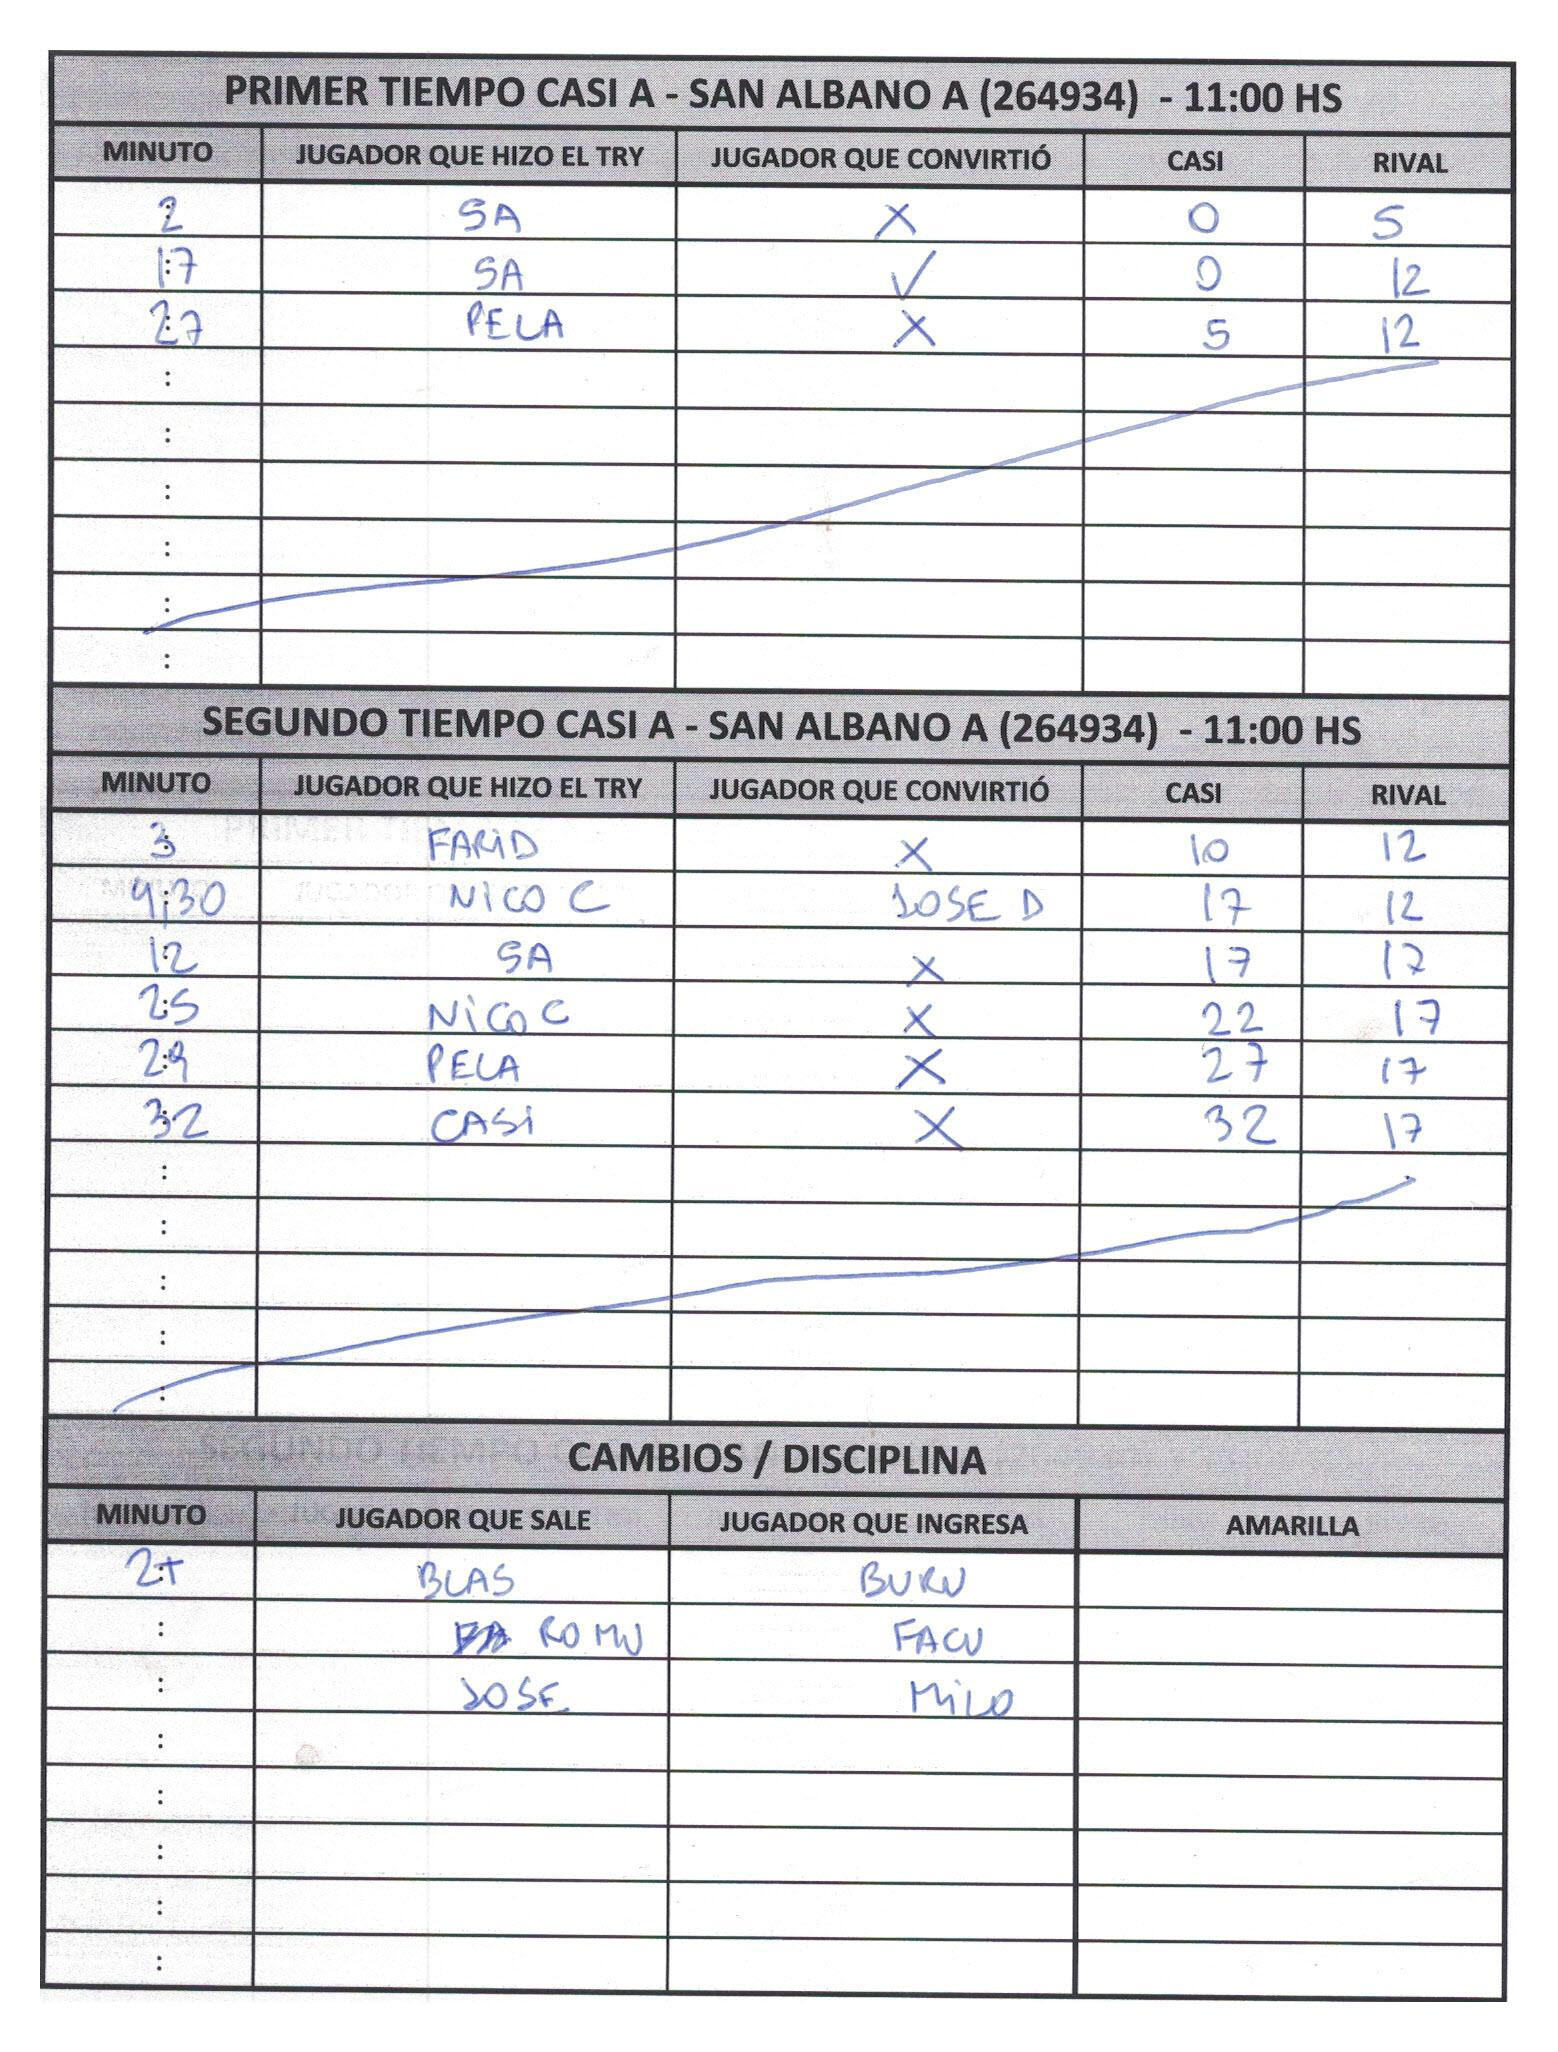 PRIMER TIEMPO CASI A - SAN ALBANO A (264934) - 11:00 HS
MINUTO JUGADOR QUE HIZO EL TRY JUGADOR QUE CONVIRTIÓ CASI RIVAL
2 SA X 0 5
17 SA ✓ 0 12
27 PELA X 5 12
:
:
:
:
:
:
SEGUNDO TIEMPO CASI A - SAN ALBANO A (264934) - 11:00 HS
MINUTO JUGADOR QUE HIZO EL TRY JUGADOR QUE CONVIRTIÓ CASI RIVAL
3 FARID X 10 12
9:30 NICO C JOSE D 17 12
12 SA X 17 17
25 NICO C X 22 17
29 PELA X 27 17
32 CASI X 32 17
:
:
:
:
:
CAMBIOS / DISCIPLINA
MINUTO JUGADOR QUE SALE JUGADOR QUE INGRESA AMARILLA
2T BLAS BURU
: ROMU FACU
: JOSE MILO
:
:
:
:
: